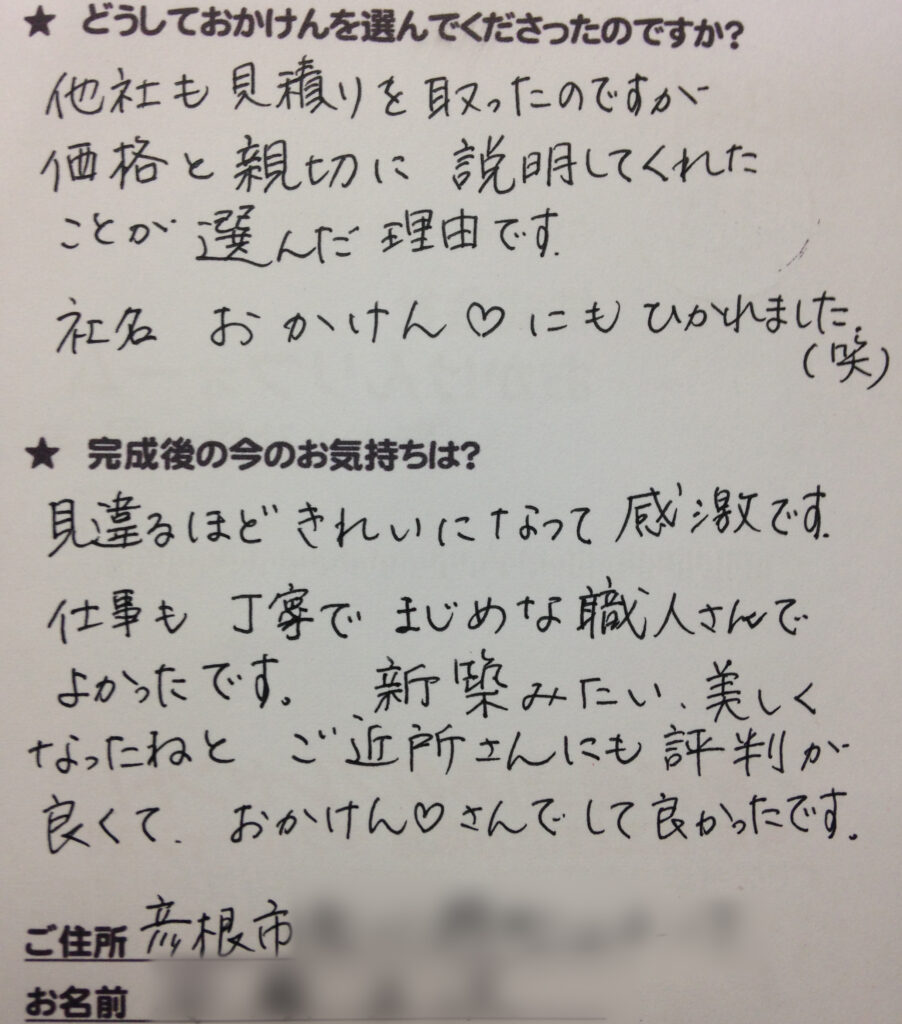 ★ どうしておかけんを選んでくださったのですか?
他社も見積りを取ったのですが
価格と親切に説明してくれた
ことが選んだ理由です.
社名 おかけん♡にもひかれました.
(笑)
★ 完成後の今のお気持ちは?
見違るほどきれいになって感激です.
仕事も丁寧でまじめな職人さんで
よかったです。 新築みたい、美しく
なったねと ご近所さんにも評判が
良くて、おかけん♡さんでして良かったです.
ご住所 彦根市
お名前